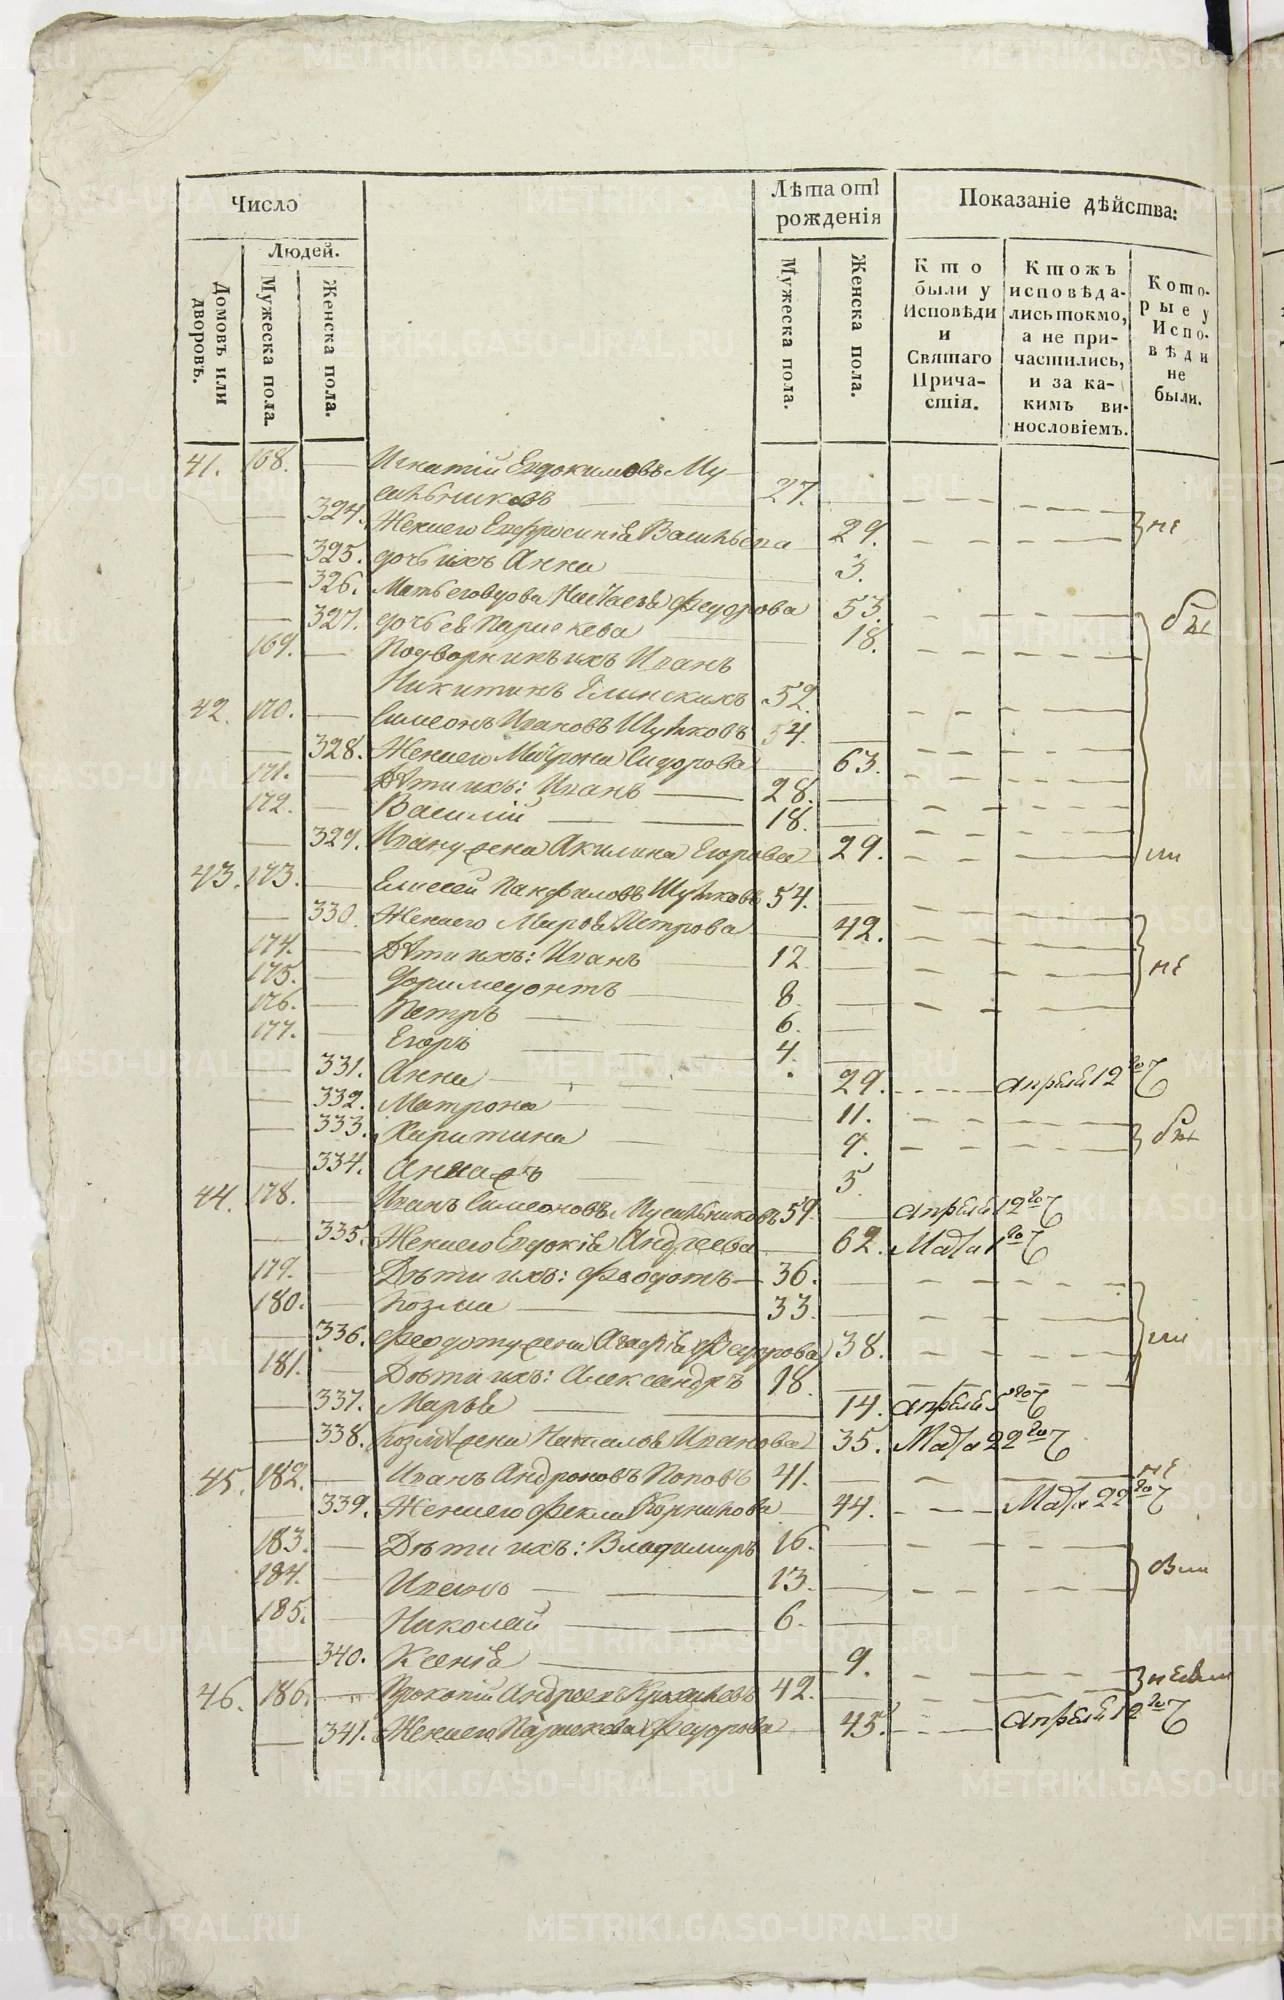 Число
Лѣта отъ рожденія
Показаніе дѣйства:
Людей.
Домовъ или дворовъ.
Мужеска пола.
Женска пола.
Мужеска пола.
Женска пола.
Кто были у Исповѣди и Святаго Причастія.
Ктожъ исповѣдались токмо, а не причастились, и за какимъ винословіемъ.
Которые у Исповѣди не были.
41. 168. Игнатій Евдокимовъ Му
сильниковъ 27.
324. Жена его Евфросинія Васильева 29. не
325. дочь ихъ Анна 3.
326. Мать его вдова Федорова 53.
327. дочь ея Параскева 18. бы
169. Подворникъ ихъ Иванъ
Никитинъ 52.
42. 170. Симеонъ Ивановъ 54.
328. Жена его Сидорова 63.
171. Дѣти ихъ: Иванъ 28.
172. Василій 18.
329. Ивану жена Акилина Егорова 29. ли
43. 173. Елисей Панфиловъ 54.
330. Жена его Марѳа Петрова 42.
174. Дѣти ихъ: Иванъ 12
175. 8.
176. Петръ 6. не
177. Егоръ 4.
331. Анна 29. апрѣля 12го Ч
332. Матрона 11.
333. Харитина 9. бы
334. 5.
44. 178. Иванъ Симеоновъ Мусильниковъ 59. апрѣля 12го Ч
335. Жена его Евдокія Андреева 62. Маія 1го Ч
179. Дѣти ихъ: Феодотъ 36.
180. Козма 33.
336. Феодоту жена Агафія Федорова 38. ли
181. Дѣти ихъ: Александръ 18.
337. Марья 14. апрѣля 5го Ч
338. Козмѣ жена Наталья Иванова 35. Маія 22го Ч
45. 182. Иванъ Андроновъ Поповъ 41. не
339. Жена его Фекла Корнилова 44. Маія 22го Ч
183. Дѣти ихъ: Владимиръ 16.
184. Иванъ 13.
185. Николай 6.
340. Ксенія 9.
46. 186. Прокопій Андреевъ 42.
341. Жена его Параскева Федорова 45. апрѣля 12го Ч
METRIKI.GASO-URAL.RU